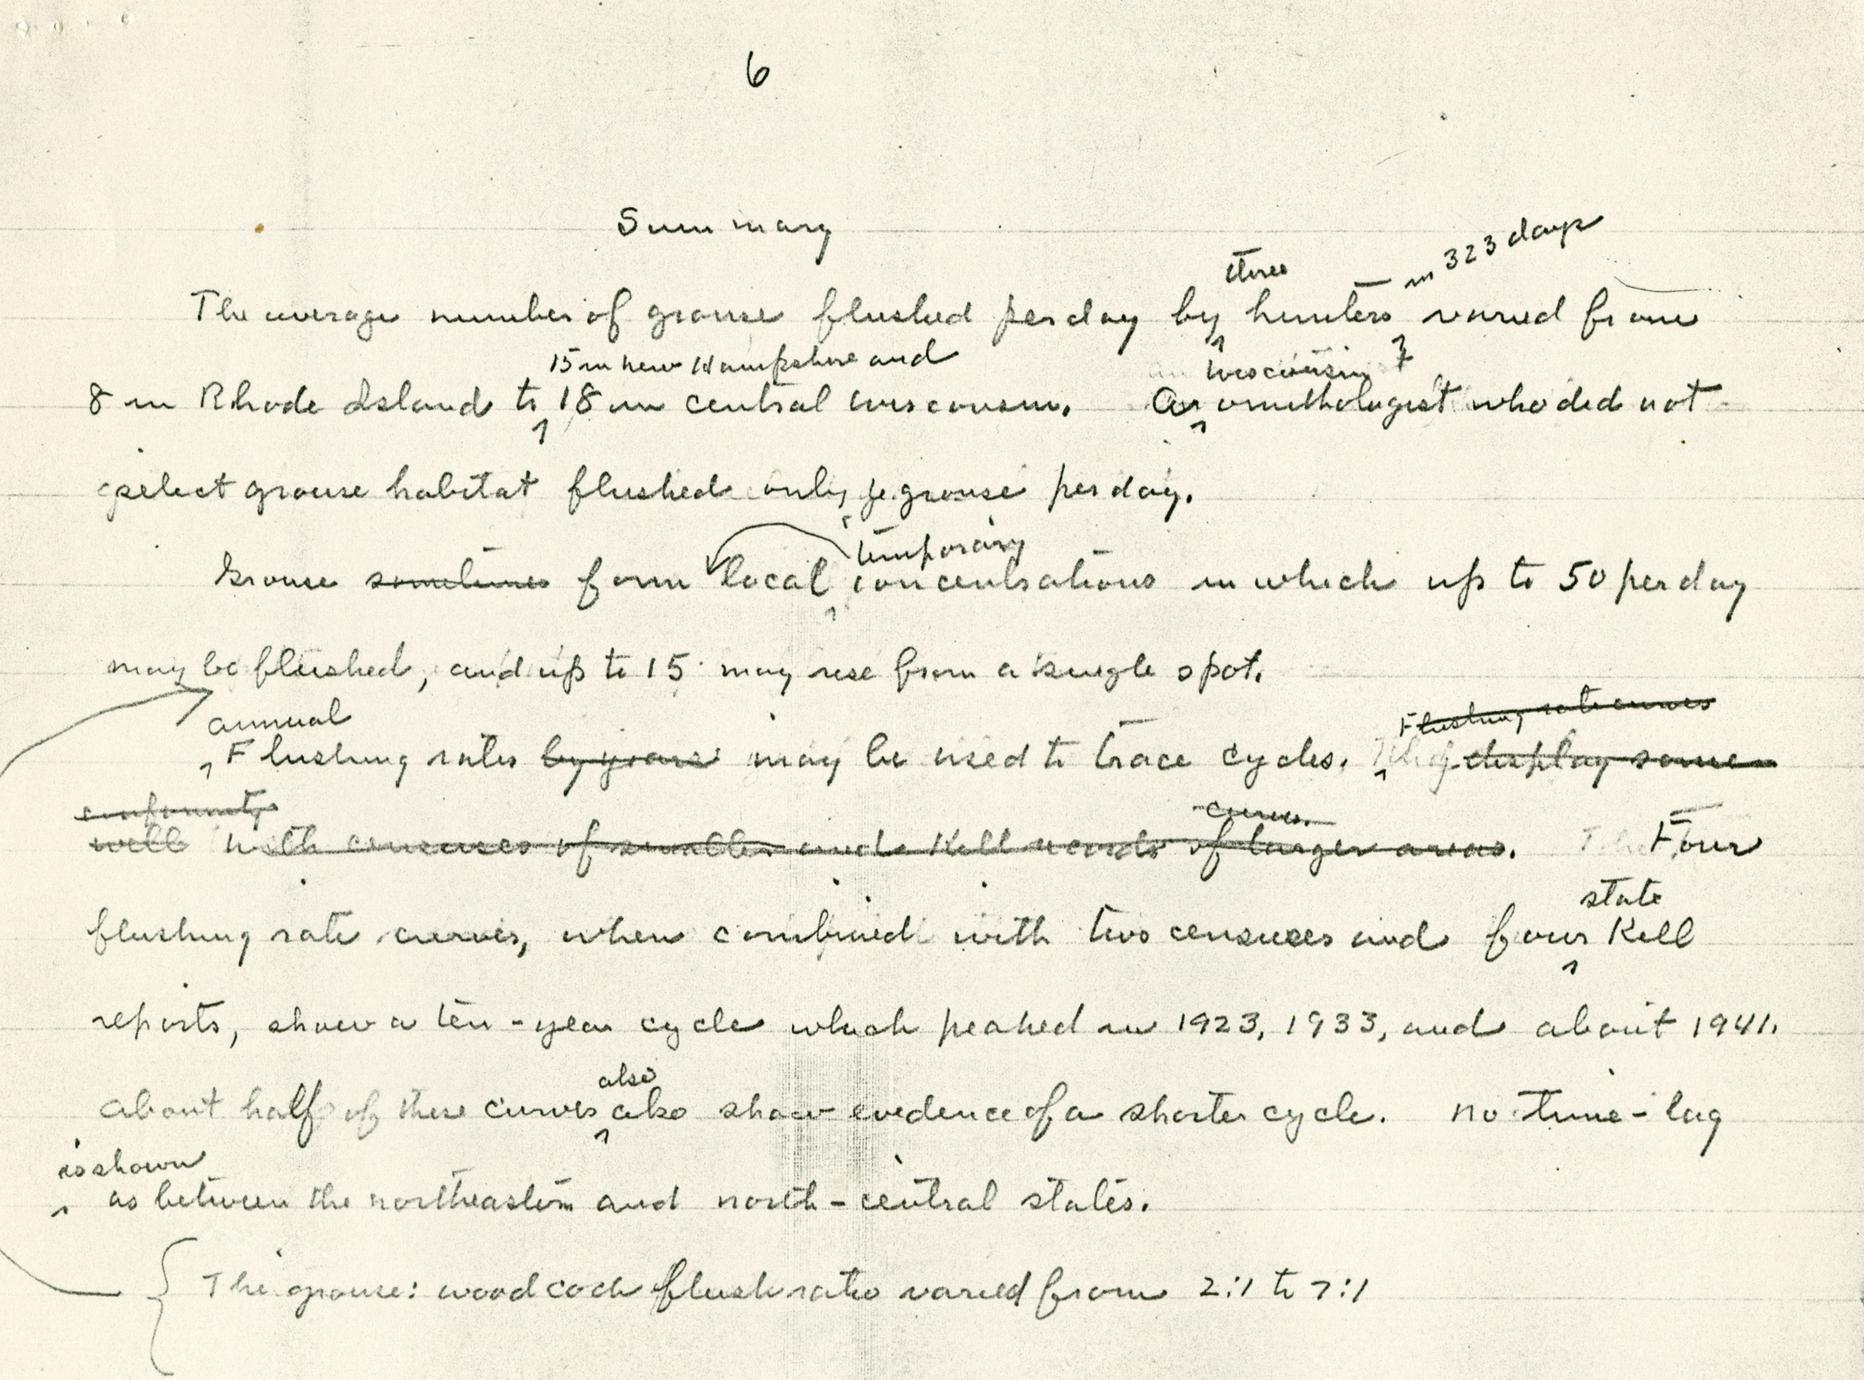 6
Summary
three
in 323 days
The average number of grouse flushed per day by hunters varied from
15 in New Hampshire and
Wisconsin
8 in Rhode Island to 18 in central Wisconsin. An ornithologist who did not
select grouse habitat flushed only grouse per day.
temporary
Grouse sometimes form local concentrations in which up to 50 per day
may be flushed, and up to 15 may rise from a single spot.
annual
Flushing rate curves
Flushing rates by years may be used to trace cycles. They display some
conformity
curves.
well with censuses of smaller and kill records of larger areas. The Four
state
flushing rate curves, when combined with two censuses and four kill
reports, show a ten-year cycle which peaked in 1923, 1933, and about 1941.
also
About half of these curves also show evidence of a shorter cycle. No time-lag
is shown
as between the northeastern and north-central states.
The grouse: woodcock flush ratio varied from 2:1 to 7:1